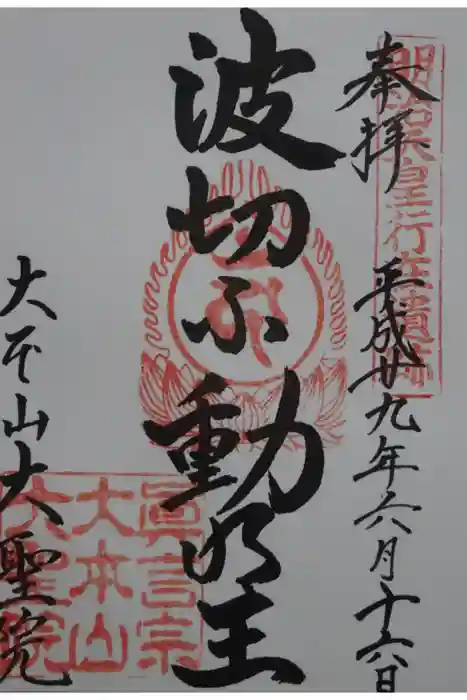 奉拝
明治天皇行在遺跡
平成廿九年六月十六日
波切不動明王
大本山大聖院
眞言宗
大本山
大聖院